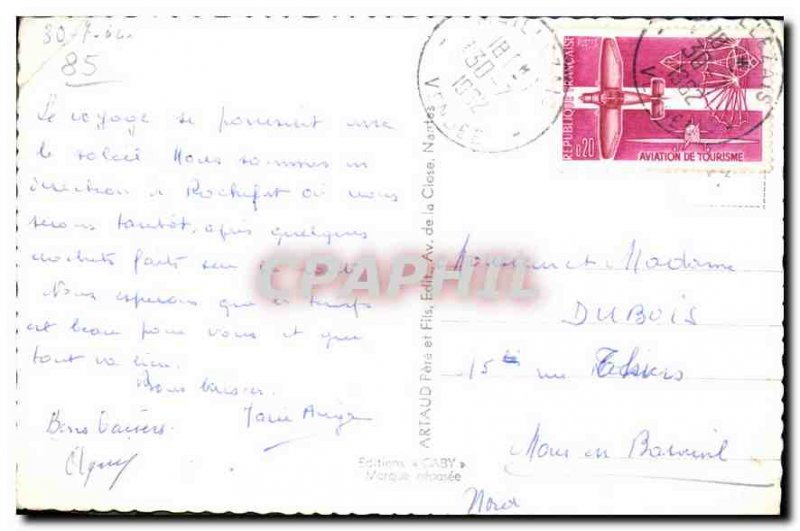 30-7-62
85
Le voyage se poursuit avec
le soleil Nous sommes en
direction de Rochefort où nous
serons tantôt, après quelques
crochets faits sur la
Nous espérons que le temps
est beau pour vous et que
tout va bien.
Bons baisers.
Bons baisers
Marie Ange
ARTAUD Père et Fils, Edit., Av. de la Close, Nantes
Editions « GABY »
Marque déposée
18 H
30-7
1962
VENDEE
18 H
30-7
1962
REPUBLIQUE FRANÇAISE
POSTES
0,20
AVIATION DE TOURISME
Monsieur et Madame
DUBOIS
15 rue Thiers
Mons en Baroeul
Nord
CPAPHIL